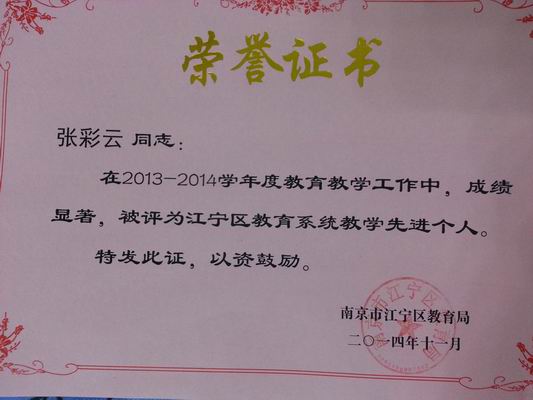 荣誉证书
张彩云 同志：
在2013-2014学年度教育教学工作中，成绩
显著，被评为江宁区教育系统教学先进个人。
特发此证，以资鼓励。
南京市江宁区教育局
二〇一四年十一月